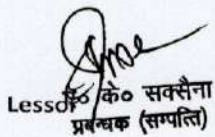 Lessor
के० सक्सैना
प्रबन्धक (सम्पत्ति)